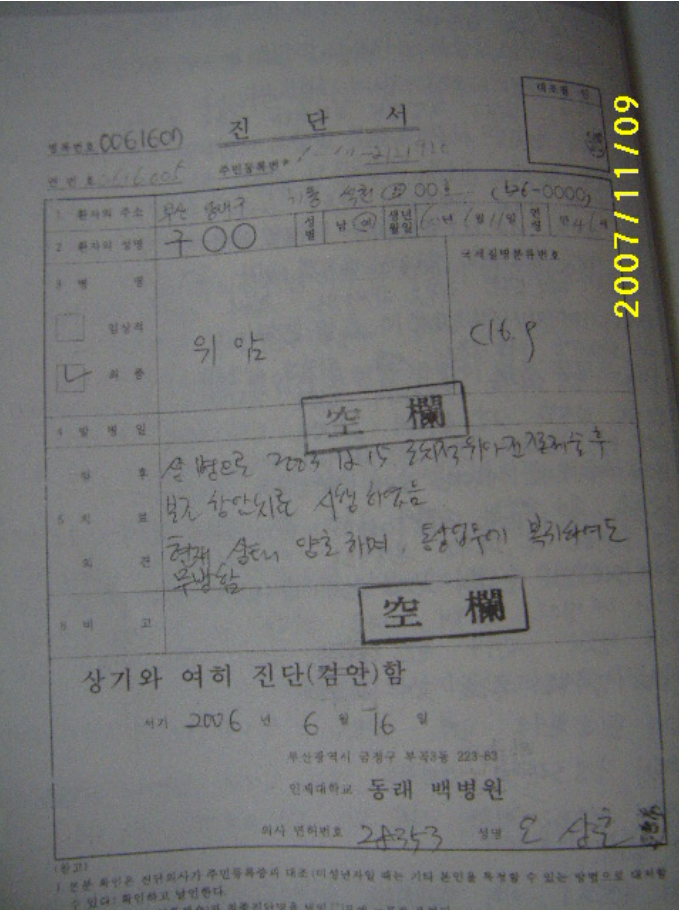 대조필 인
진 단 서
병록번호 0061607
연 번 호
주민등록번호
1 환자의 주소 부산 (626-0000)
2 환자의 성명 구○○ 성별 남 여 생년월일 년 6월 11일 연령 만 46세
3 병 명 국제질병분류번호
임상적
위암 C16.9
최 종
4 발 병 일 空 欄
상병으로 2005. 12. 15. 근치적 위아전절제술 후
향 후
5 치 료 보조 항암치료 시행하였음
의 견 현재 상태 양호하며, 통상업무에 복귀하여도
무방함
6 비 고 空 欄
상기와 여히 진단(검안)함
서기 2006 년 6 월 16 일
부산광역시 금정구 부곡3동 223-83
인제대학교 동래 백병원
의사 면허번호 28353 성명 오 상훈
(참고)
1 본분 확인은 진단의사가 주민등록증과 대조(미성년자일 때는 기타 본인을 특정할 수 있는 방법으로 대처할
수 있다) 확인하고 날인한다.
2007/11/09